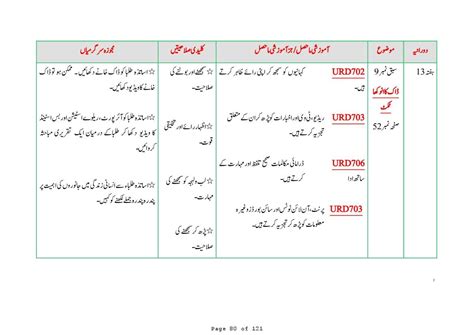 دورانیہ
موضوع
آموزشی ماحصل/جز آموزشی ماحصل
کلیدی صلاحیتیں
مجوزہ سرگرمیاں
ہفتہ 13
سبق نمبر 9
ڈاک کا انوکھا
ٹکٹ
صفحہ نمبر 52
URD702
کہانیوں کو سمجھ کر اپنی رائے ظاہر کرتے
ہیں۔
URD703
ریڈیو ٹی وی اور اخبارات کو پڑھ کر ان کے متعلق
تجزیہ کرتے ہیں۔
URD706
ڈرامائی مکالمات صحیح تلفظ اور مہارت کے
ساتھ ادا
URD703
پرنٹ، آن لائن نوٹس اور سائن بورڈز وغیرہ
معلومات کو پڑھ کر تجزیہ کرتے ہیں۔
☆ سمجھنے اور بولنے کی
صلاحیت۔
☆ اظہار رائے اور تخلیقی
قوت۔
☆ لب ولہجہ کو سمجھنے کی
مہارت۔
☆ پڑھ کر سمجھنے کی
صلاحیت۔
☆ اساتذہ طلبا کو ڈاک خانے لے جائیں۔ ممکن ہو تو ڈاک
خانے کا ویڈیو دکھائیں۔
☆ اساتذہ طلبا کو آئر پورٹ، ریلوے اسٹیشن اور بس اسٹینڈ
کا ویڈیو دکھا کر طلبا کے درمیان ایک تقریری مباحثہ
کروائیں۔
☆ اساتذہ طلبا سے انسانی زندگی میں جانوروں کی اہمیت پر
چند جملے لکھنے کو کہیں۔
Page 80 of 121